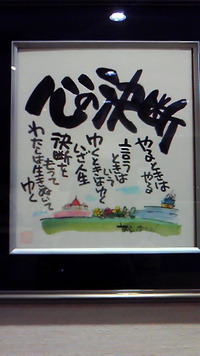 心の決断
やるときは
やる
言うは
ときは
いう
ゆくときはゆく
いざ人生
決断を
もって
わたしは生きぬいて
ゆく